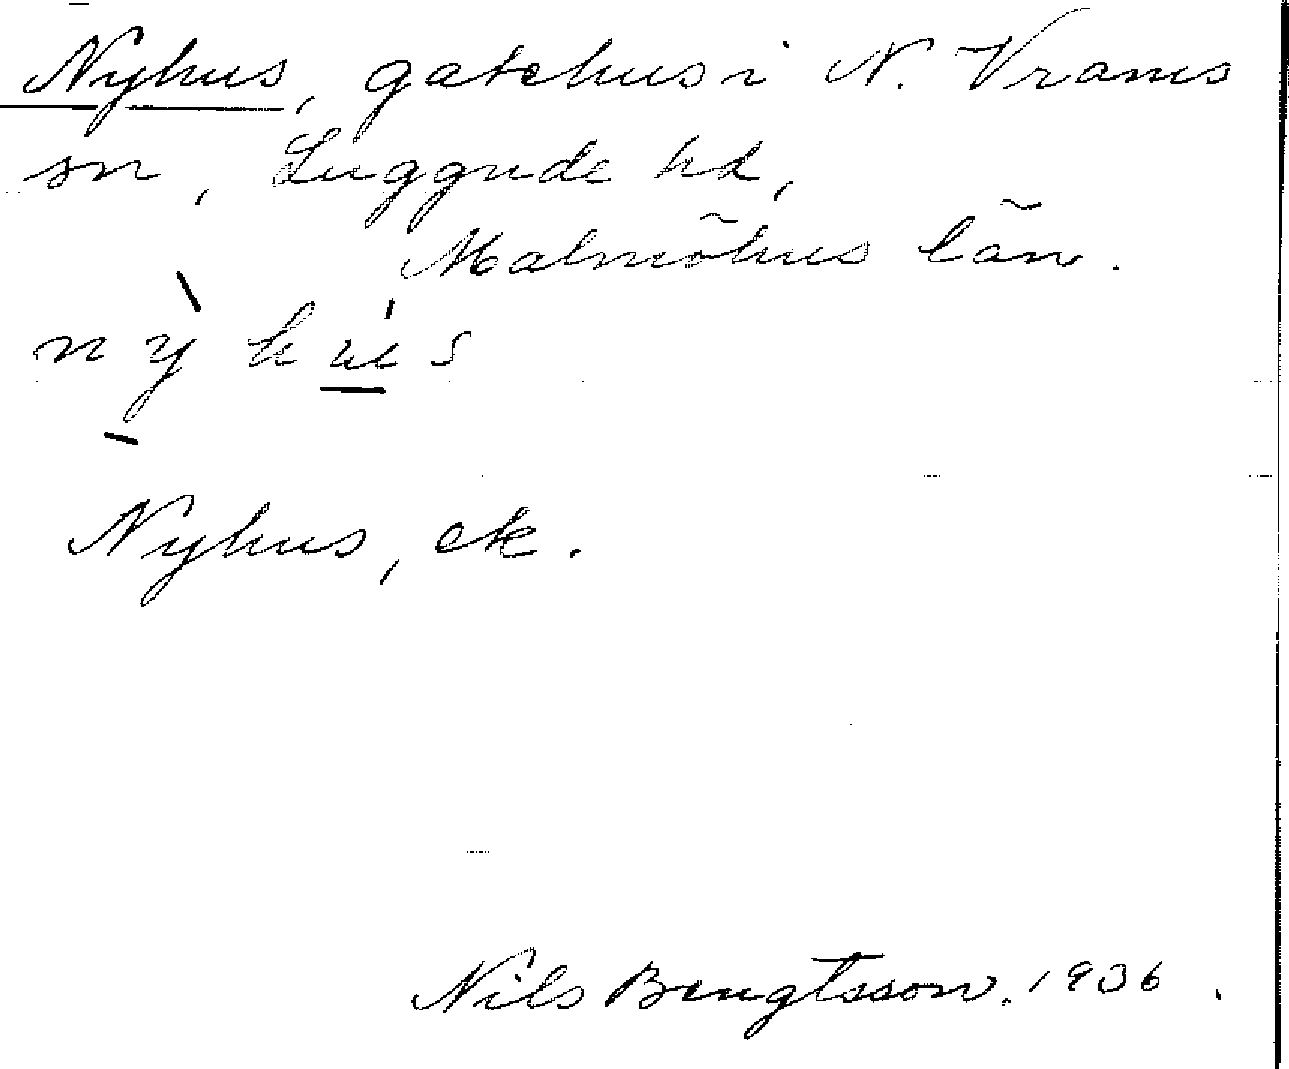 Nyhus, gatehus i N. Vrams
sn, Luggude hd,
Malmöhus län.
nỳhús
Nyhus, ek.
Nils Bengtsson, 1936.